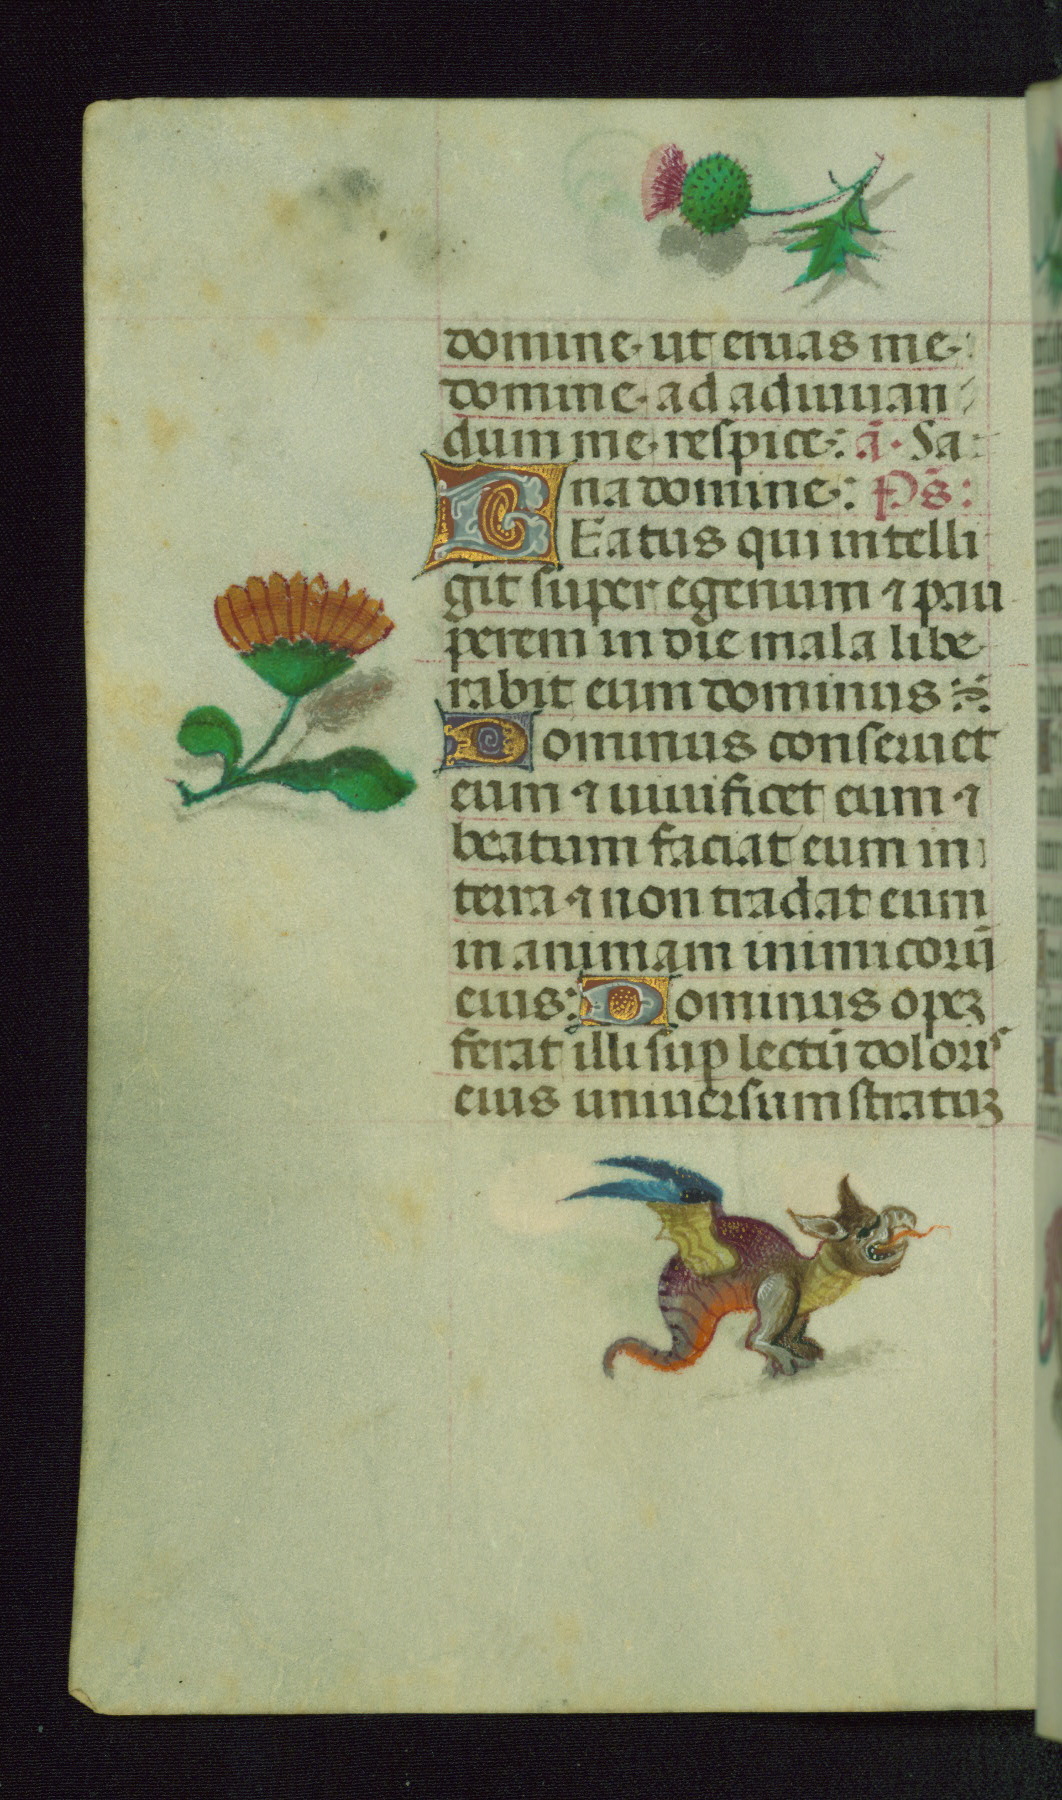 domine· ut eruas me·:
domine· ad adiuuan
dum me· respice·: ā· Sa:
na domine·: Ps̄:
BEatus qui intelli
git super egenum ⁊ pau
perem in die mala libe
rabit eum dominus
Dominus conseruet
eum ⁊ uiuificet eum ⁊
beatum faciat eum in
terra ⁊ non tradat eum
in animam inimicorū
eius: Dominus opeꝫ
ferat illi sup lectū doloris
eius uniuersum stratuꝫ